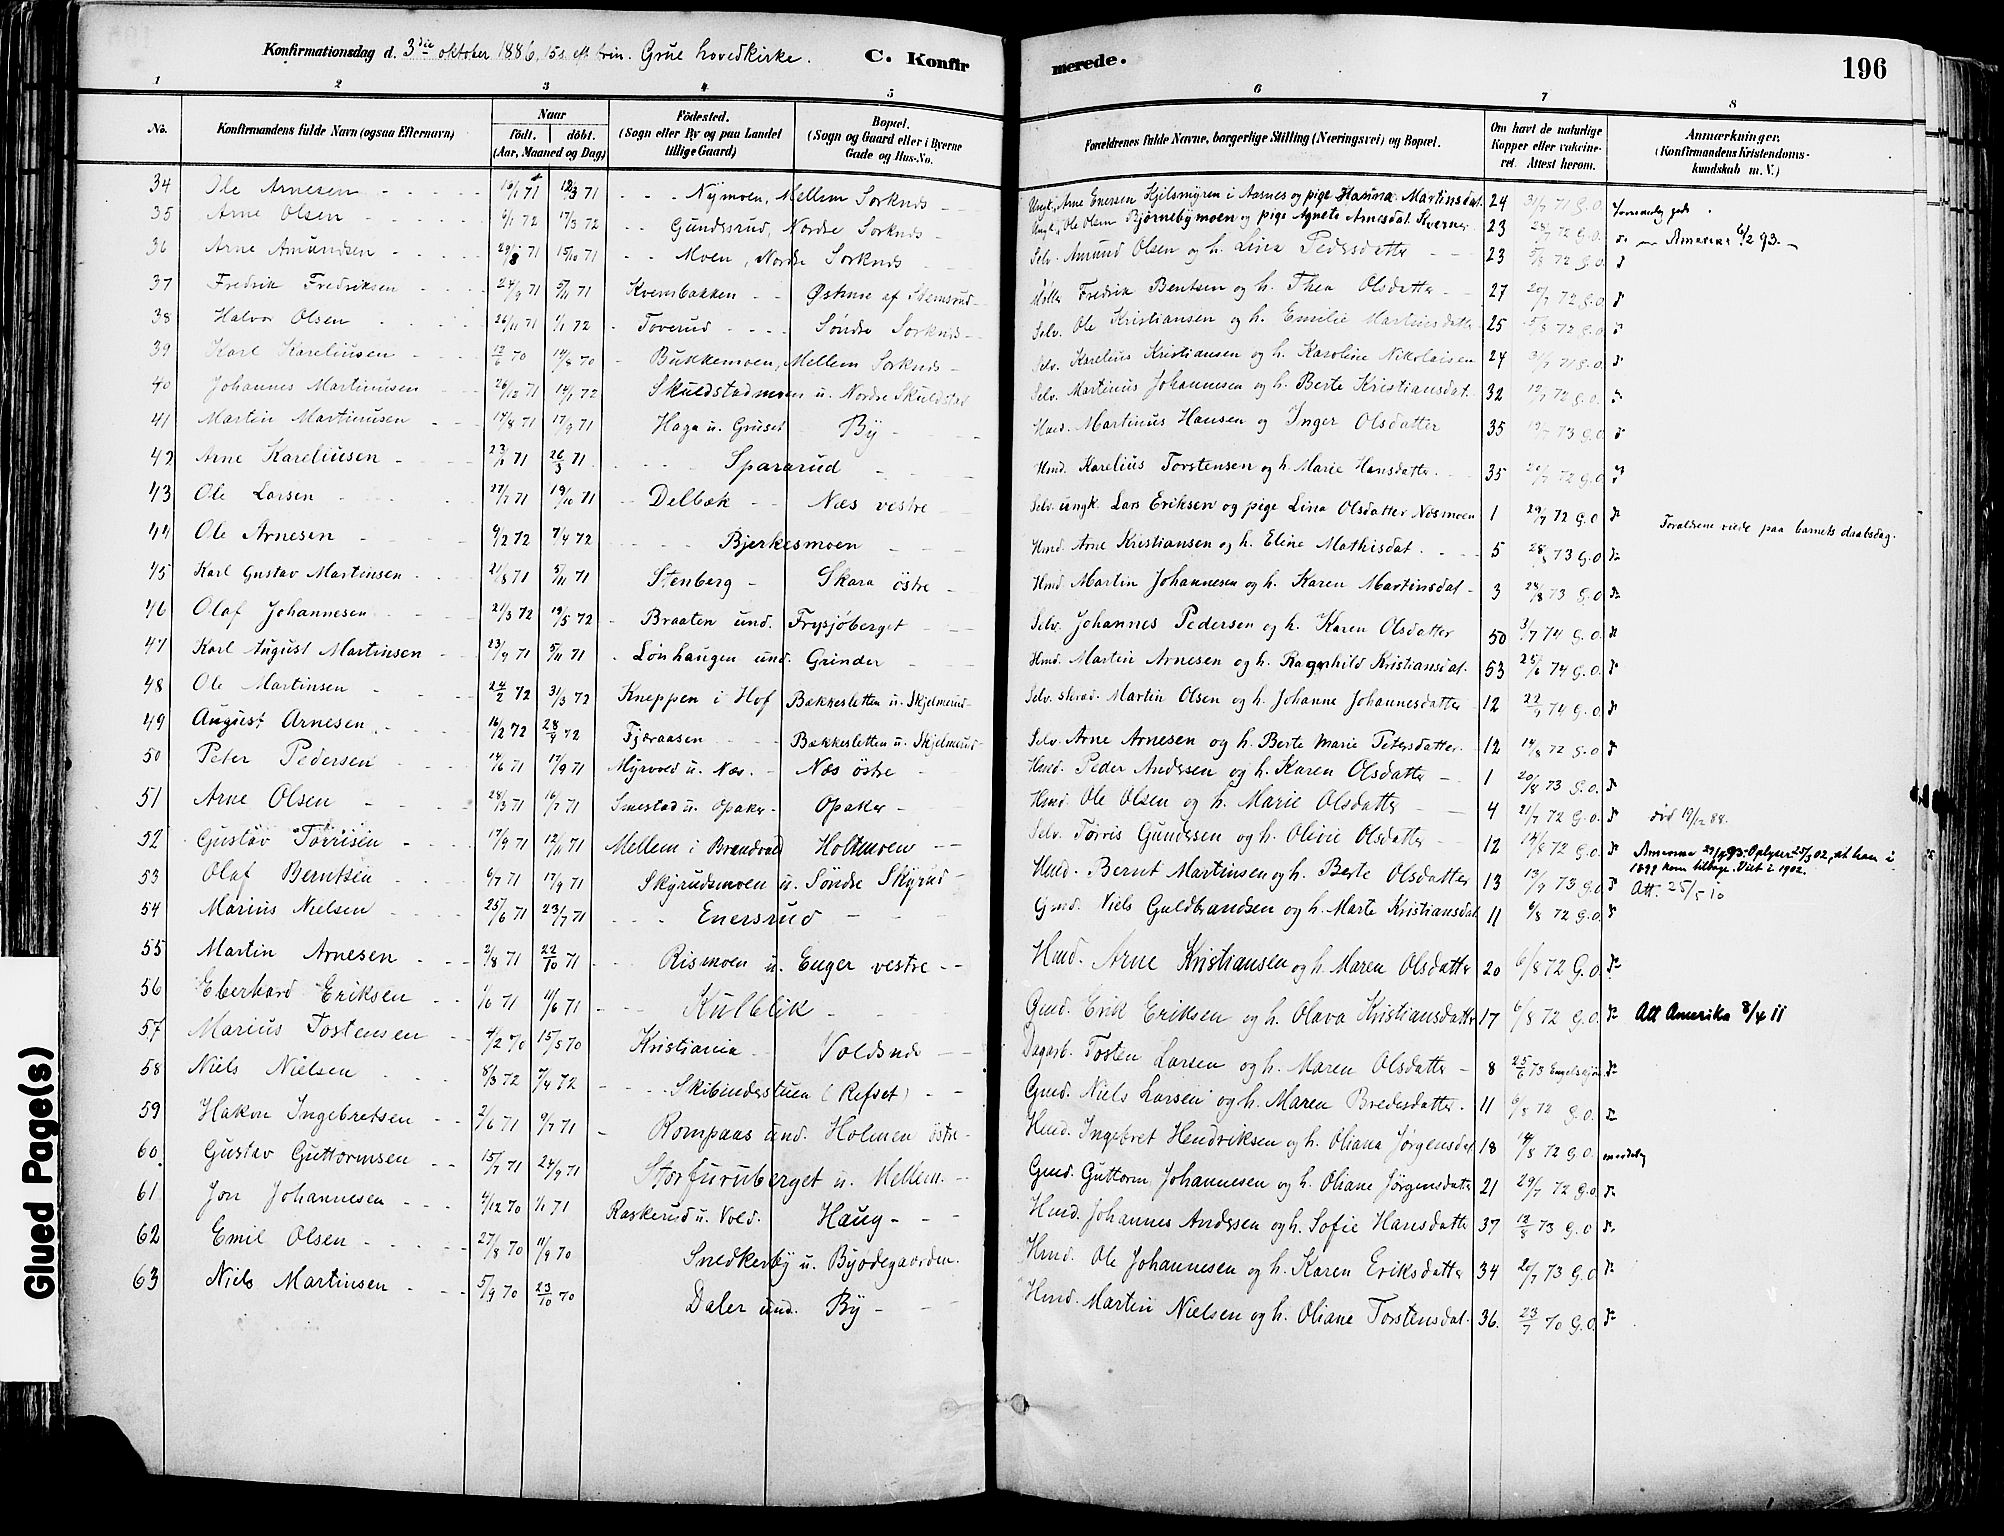 Konfirmationsdag d. 3die oktober 1886, 15 s. eft. trin. Grue hovedkirke. C. Konfirmerede. 196
1 2 3 4 5 6 7 8
No. Konfirmandens fulde Navn (ogsaa Efternavn) Naar födt. döbt. (Aar, Maaned og Dag) Födested. (Sogn eller By og paa Landet tillige Gaard) Bopæl. (Sogn og Gaard eller i Byerne Gade og Hus-No. Forældrenes fulde Navne, borgerlige Stilling (Næringsvei) og Bopæl. Om havt de naturlige Kopper eller vakcineret. Attest herom. Anmærkninger. (Konfirmandens Kristendomskundskab m. V.)
34 Ole Arnesen 71 12/3 71 Nymoen, Mellem Sorknes Ungk. Arne Enersen Hjelmmyren i Aasnes og pige Hanna Martinsdat. 24 31/7 71 G.O.
35 Arne Olsen 6/1 72 17/3 72 Gundersrud, Nordre Sorknes Ungk. Ole Olsen Bjørnebymoen og pige Agnete Arnesdat. Kverner 23 72 G.O.
36 Arne Amundsen 29/8 71 15/10 71 Moen, Nordre Sorknes Selv. Amund Olsen og h. Lina Pedersdatter 23 5/8 72 G.O. Amerika 6/2 93.
37 Fredrik Fredriksen 24/9 71 5/11 71 Kvernbakken Østeue af Stemsrud Fredrik Bentsen og h. Thea Olsdatter 27 20/7 72 G.O.
38 Halvor Olsen 26/11 71 1/1 72 Toverud Søndre Sorknes Selv. Ole Kristiansen og h. Emilie Martinsdatter 25 5/8 72 G.O.
39 Karl Kareliusen 12/6 70 14/8 70 Bukkemoen, Mellem Sorknes Selv. Karelius Kristiansen og h. Karoline Nikolaisen 24 31/7 71 G.O.
40 Johannes Martinusen 26/12 71 14/1 72 Skuldstadmoen u. Nordre Skuldstad Selv. Martinus Johannesen og h. Berte Kristiansdat. 32 12/7 72 G.O.
41 Martin Martinusen 14/8 71 17/9 71 Haga u. Gruset By Hmd. Martinus Hansen og Inger Olsdatter 35 19/7 73 G.O.
42 Arne Kareliusen 71 26/3 71 Spararud Hmd. Karelius Torstensen og h. Marie Hansdatter 35 72 G.O.
43 Ole Larsen 27/7 71 19/10 71 Delbæk Næs vestre Selv. ungk. Lars Eriksen og pige Lina Olsdatter Næsmoen 1 29/7 72 G.O. Forældrene viede paa barnets daabsdag.
44 Ole Arnesen 9/2 72 7/4 72 Bjerkesmoen Hmd. Arne Kristiansen og h. Eline Mathisdat. 5 28/8 73 G.O.
45 Karl Gustav Martinsen 21/8 71 5/11 71 Stenberg Skara östre Hmd. Martin Johannesen og h. Karen Martinsdat 3 28/8 73 G.O.
46 Olaf Johannesen 21/3 72 19/5 72 Braaten und. Frysjöberget Selv. Johannes Pedersen og h. Karen Olsdatter 50 3/7 74 G.O.
47 Karl August Martinsen 23/9 71 5/11 71 Lønhaugen und. Grinder Hmd. Martin Arnesen og h. Ragnhild Kristiansdat. 53 25/6 74 G.O.
48 Ole Martinsen 24/2 72 31/3 72 Kneppen i Hof Bækkesletten u. Skjelmerud Selv. skræd. Martin Olsen og h. Johanne Johannesdatter 12 22/7 74 G.O.
49 August Arnesen 16/2 72 28/4 72 Fjæraasen Bækkesletten u. Skjelmerud Selv. Arne Arnesen og h. Berte Marie Petersdatter 12 14/8 72 G.O.
50 Peter Pedersen 14/6 71 17/9 71 Myrvold u. Næs. Næs östre Hmd. Peder Andersen og h. Karen Olsdatter 1 20/8 73 G.O.
51 Arne Olsen 28/3 71 16/7 71 Smestad u. Opaker Opaker Hmd. Ole Olsen og h. Marie Olsdatter 4 21/7 72 G.O. død 19/12 88.
52 Gustav Tørrisen 17/9 71 12/11 71 Mellem i Brandval Holtmoen Selv. Tørris Gundersen og h. Olivie Olsdatter 12 14/8 72 G.O. Amerika 93. Oplyser 25/3 02, at han i
53 Olaf Berntsen 6/7 71 17/9 71 Skyrudsmoen u. Søndre Skyrud Hmd. Bernt Martinsen og h. Berte Olsdatter 13 13/9 73 G.O. 1899 kom tilbage. Viet i 1902.
Att. 25/5 10
54 Marius Nielsen 25/6 71 23/7 71 Enersrud Gmd. Niels Guldbrandsen og h. Marte Kristiansdat. 11 6/8 72 G.O.
55 Martin Arnesen 2/8 71 22/10 71 Rismoen u. Euger vestre Hmd. Arne Kristiansen og h. Maren Olsdatter 20 6/8 72 G.O.
56 Eberhard Eriksen 1/6 71 11/6 71 Kulblik Gmd. Erik Eriksen og h. Olava Kristiansdatter 17 6/8 72 G.O. Att Amerika 8/4 11
57 Marius Tostensen 4/2 70 15/5 70 Kristiania Voldsnes Dagarb. Tosten Larsen og h. Maren Olsdatter 8 25/6 73
58 Niels Nielsen 8/3 72 7/4 72 Skibinderstuen (Refset) Gmd. Niels Larsen og h. Maren Bredesdatter 11 6/8 72 G.O.
59 Hakon Ingebretsen 2/6 71 9/7 71 Rompaas und. Holmen östre Hmd. Ingebret Hendriksen og h. Oliana Jørgensdat. 18 14/8 72 G.O.
60 Gustav Guttormsen 15/7 71 24/9 71 Storfuruberget u. Mellem Gmd. Guttorm Johannesen og h. Oliane Jørgensdatter 21 29/7 72 G.O.
61 Jon Johannesen 4/12 70 1/1 71 Raskerud u. Vold. Haug Hmd. Johannes Andersen og h. Sofie Hansdatter 37 13/8 73 G.O
62 Emil Olsen 27/8 70 11/9 70 Snedkerby u. Byødegaarden Hmd. Ole Johannesen og h. Karen Eriksdatter 34 20/7 73 G.O
63 Niels Martinsen 5/9 70 23/10 70 Daler und. By Hmd. Martin Nielsen og h. Oliane Torstensdat. 36 23/7 70 G.O.
Glued Page(s)